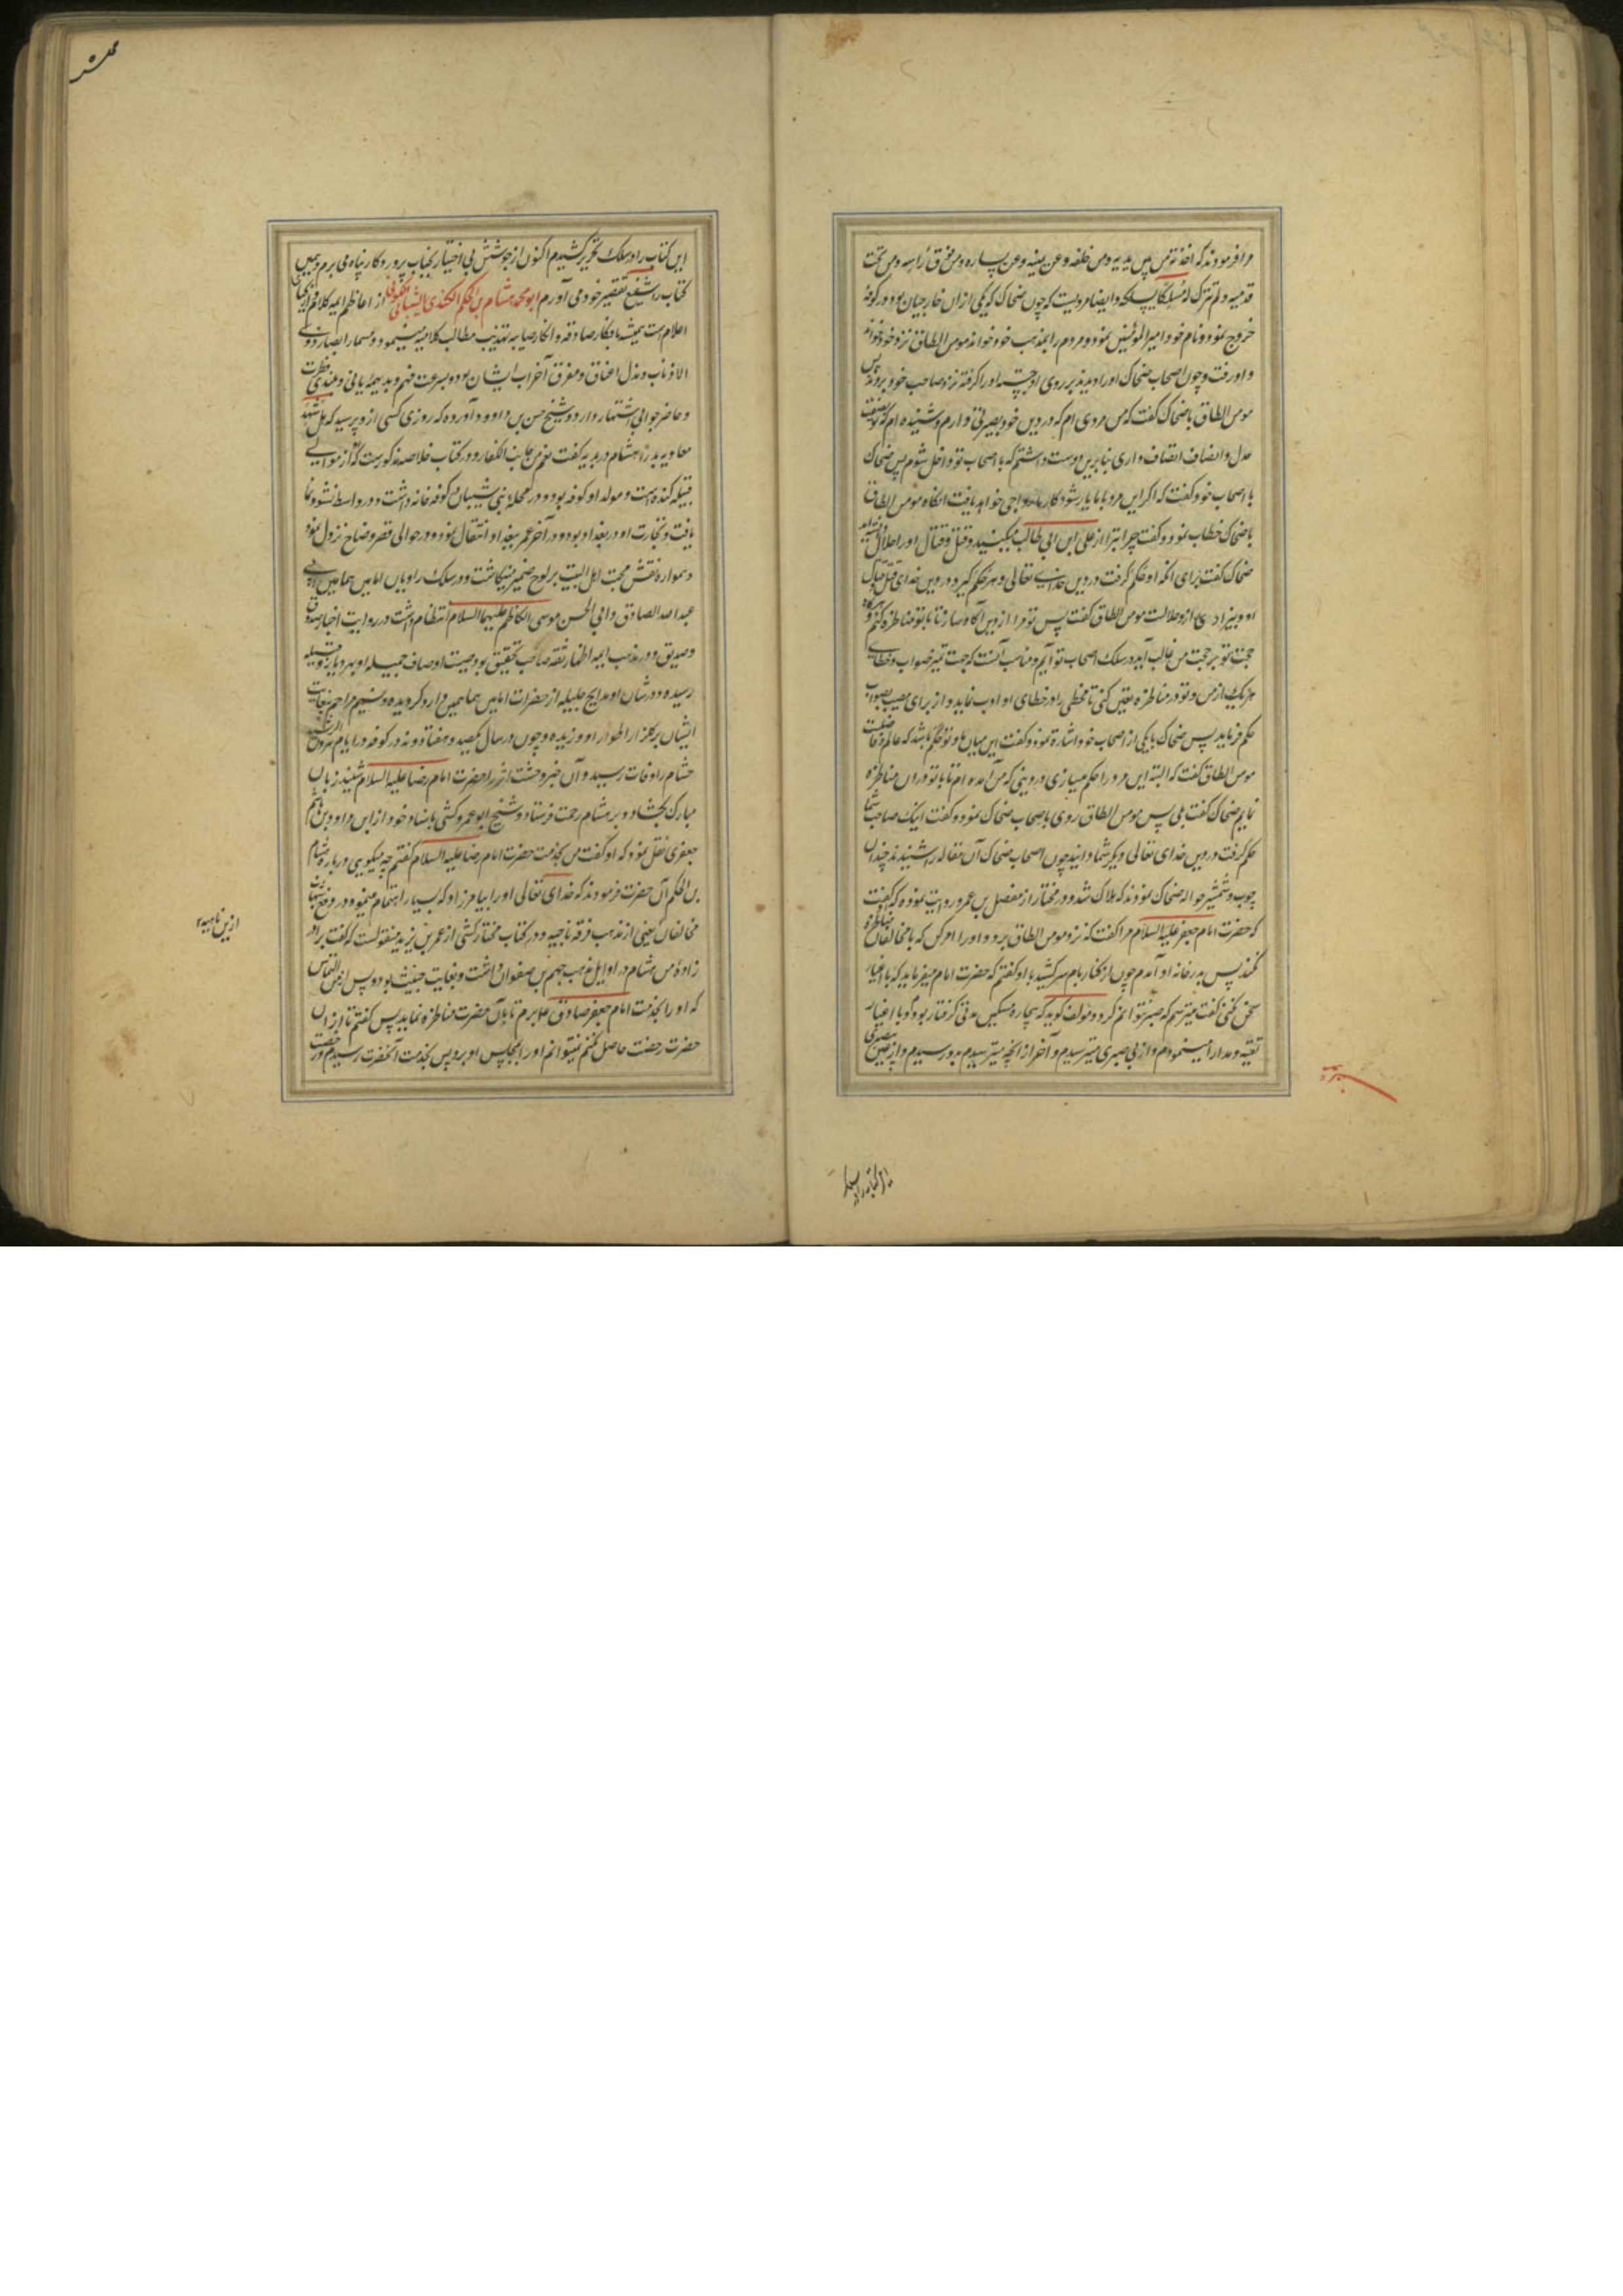 مرا فرمودند که اخذته من بین یدیه ومن خلفه وعن یمینه وعن یساره ومن فوق راسه ومن تحت
قدمیه ولم تترک له مسلکا پس که وایضا مرویست که چون ضحاک که یکی از ان خارجیان بود در کوفه
خروج نمود ونام خود امیرالمومنین نمود ومردم را بمذهب خود خواند مومن الطاق نزد خود
واو رفت وچون اصحاب ضحاک اورا دیدند بر روی او جستند اورا گرفته نزد صاحب خود بردند پس
مومن الطاق با ضحاک گفت که من مردی ام که در دین خود بصیرتی دارم وشنیده ام که تو بصفت
عدل وانصاف اتصاف داری بنابرین دوست داشتم که با اصحاب تو داخل شوم پس ضحاک
با اصحاب خود گفت که اگر این مرد با ما یار شود کار ما رواجی خواهد یافت انکاه مومن الطاق
با ضحاک خطاب نمود وگفت چرا تبرا از علی ابن ابی طالب میکنید وقتل وقتال اورا حلال
ضحاک گفت برای انکه او حکم گرفت در دین خدای تعالی وهر که حکم گیرد در دین خدای قتل وقتال
او وبیزاری ازو حلالست مومن الطاق گفت پس تو مرا از دین آگاه ساز تا با تو مناظره کنم وهرگاه
حجت تو بر حجت من غالب آید در سلک اصحاب تو آیم ومناسب آنست که جهت تمیز صواب وخطای
هر یک از من وتو در مناظره تعین کنی تا مخطی را در خطای او ادب نماید واز برای مصیب بصواب
حکم فرماید پس ضحاک بیکی از اصحاب خود اشارة نمود وگفت این میان ما وتو حکم باشد که عالم وفاضلست
مومن الطاق گفت که البته این مرد را حکم میسازی در دینی که من آمده ام تا با تو در ان مناظره
نمایم ضحاک گفت بلی پس مومن الطاق روی با صحاب ضحاک نمود وگفت اینک صاحب شما
حکم گرفت در دین خدای تعالی دیگر شما دانید چون اصحاب ضحاک آن مقاله را شنیدند چندان
چوب وشمشیر حواله ضحاک نمودند که هلاک شد ودر مختار از مفضل بن عمر روایت نموده که گفت
که حضرت امام جعفر علیه السلام مرا گفت که نزد مومن الطاق برو واورا امر کن که با مخالفان مناظره
نکند پس بدر خانه او آمدم چون از کنار بام سر کشید با او گفتم که حضرت امام میفرماید که با اغیار
سخن نکنی گفت میترسم که صبر نتوانم کرد ومولف گوید که بیچاره مسکین مدتی گرفتار بودم وبا اغیار
تقیه ومدارا مینمودم واز بی صبری میترسیدم وآخر از انچه میترسیدم بدو رسیدم واز عین بیصبری
این کتاب را در سلک
این کتاب را در سلک تحریر کشیدم اکنون از جوشش بی اختیار بجناب پروردگار پناه می برم وهمین
کتاب را شفیع تقصیر خود می آورم ابو محمد هشام بن الحکم الکندی الشیبانی الکوفی از اعاظم ایمه کلام
اعلام است همیشه بافکار صادقه وانظار صایبه تهذیب مطالب کلامیه مینمود
الاذناب ومذل اعناق ومفرق احزاب ایشان بود وبسرعت فهم وبدیهه یابی وبلندی فطرت
وحاضر جوابی اشتهار دارد وشیخ حسن بن داود آورده که روزی کسی ازو پرسید که هل شهد
معاویه بدرا هشام در بدیهه گفت نعم من جانب الکفار ودر کتاب خلاصه مذکورست که از موالی
قبیله کنده است ومولد او کوفه بود ودر محله بنی شیبان کوفه خانه داشت ودر واسط نشو ونما
یافت وتجارت او در بغداد بود ودر آخر عمر ببغداد انتقال نمود ودر حوالی قصر وضاح نزول نمود
وهمواره نقش محبت اهل البیت بر لوح ضمیر مینگاشت ودر سلک راویان امامین همامین ابی
عبدالله الصادق وابی الحسن موسی الکاظم علیهما السلام انتظام داشت در روایت اخبار صدوق
وصدیق ودر مذهب ایمه اطهار ثقه صاحب تحقیق بود وصیت اوصاف جمیله او بهر دیار وقبیله
رسیده ودر شان او مدایح جلیله از حضرات امامین همامین وارد گردیده ونسیم مراحم بغایت
ایشان بر گلزار اطوار او وزیده وچون در سال یکصد وهفتاد ونه در کوفه در ایام هرون الرشید
هشام را وفات رسید وآن خبر وحشت اثر را حضرت امام رضا علیه السلام شنید زبان
مبارک بگشاد وبر هشام رحمت فرستاد وشیخ ابو عمرو کشی باسناد خود از ابن داود بن هاشم
جعفری نقل نمود که او گفت من بخدمت حضرت امام رضا علیه السلام گفتم چه میگویی درباره هشام
بن الحکم آن حضرت فرمودند که خدای تعالی اورا بیامرزاد که بسیار اهتمام مینمود در دفع شبهات
مخالفان یعنی از مذهب فرقه ناجیه ودر کتاب مختار کشی از عمر بن یزید منقولست که گفت برادر
زادۀ من هشام در اوایل مذهب جهم بن صفوان داشت وبغایت خبیث بود پس از من التماس
که اورا بخدمت امام جعفر صادق علیه برم تا با آن حضرت مناظره نماید پس گفتم تا از ان
حضرت رخصت حاصل نکنم نمیتوانم اورا بمجلس او برد پس بخدمت آنحضرت رسیدم ورخصت
از من ناحیه